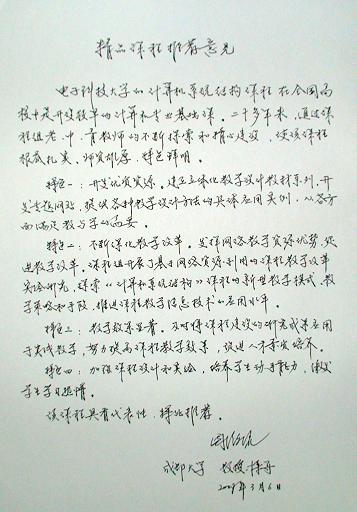 精品课程推荐意见
电子科技大学的计算机系统结构课程在全国高
校中是开设较早的计算机专业基础课。二十多年来,通过课
程组老、中、青教师的不断探索和精心建设,使该课程
根底扎实,师资雄厚,特色鲜明。
特色一:开发优质资源。建立立体化教学设计教材系列,开
发专题网站,提供各种教学设计方法的具体应用实例,从各方
面满足教与学的需要。
特色二:不断深化教学改革。发挥网络教学资源优势,促
进教学改革。课程组开展了基于网络资源利用的课程教学改革
实验研究,探索《计算机系统结构》课程的新型教学模式、教
学策略和手段,推进课程教学信息技术的应用水平。
特色三:教学效果显著。及时将课程建设的研究成果应用
于实际教学,努力提高课程教学效果,促进人才素质培养。
特色四:加强课程设计和实验,培养学生动手能力,激发
学生学习热情。
该课程具有代表性,特此推荐。
成都大学 教授
2009年3月6日